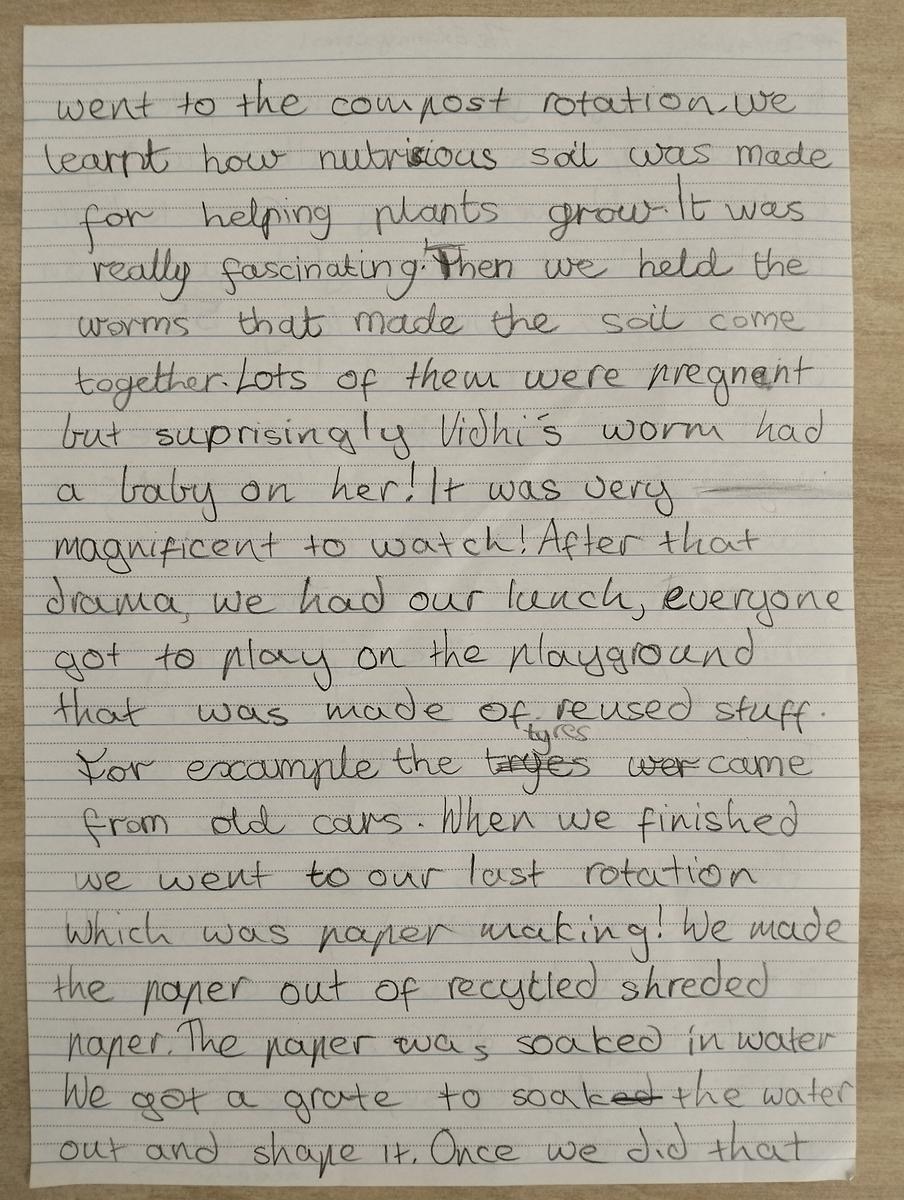 went to the compost rotation.we
learnt how nutricious soil was made
for helping plants grow.It was
really fascinating.Then we held the
worms that made the soil come
together.Lots of them were pregnant
but suprisingly Vidhi's worm had
a baby on her!It was very
magnificent to watch!After that
drama, we had our lunch, everyone
got to play on the playground
that was made of reused stuff.
tyres
For example the tryes wer came
from old cars. When we finished
we went to our last rotation
which was paper making! We made
the paper out of recytled shreded
paper.The paper was soaked in water
We got a grate to soaked the water
out and shape it. Once we did that